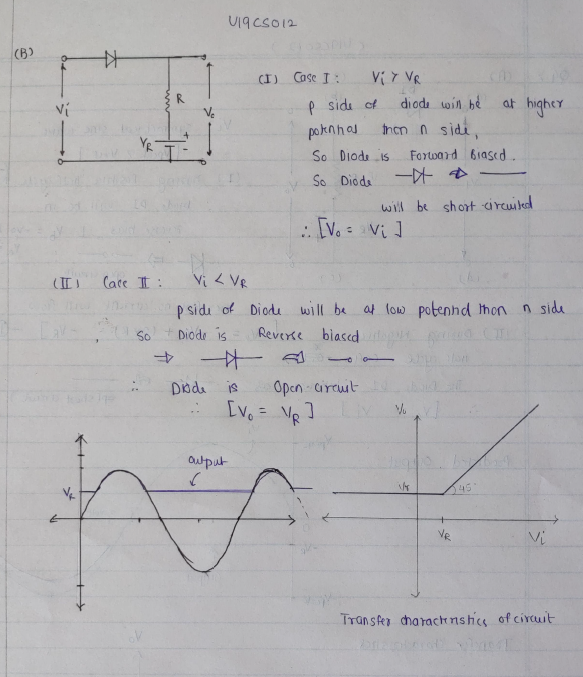 U19CS012
(B)
(I) Case I : Vi > VR
P side of diode will be at higher
potential then n side,
So Diode is Forward Biased.
So Diode
will be short-circuited
∴ [Vo = Vi]
Vi
R
Vo
VR
+
-
(II) Case II : Vi < VR
p side of Diode will be at low potential than n side
So Diode is Reverse biased
⇒
∴ Diode is Open-circuit
∴ [Vo = VR]
output
VR
Vo
Vr
45°
VR
Vi
Transfer characteristics of circuit